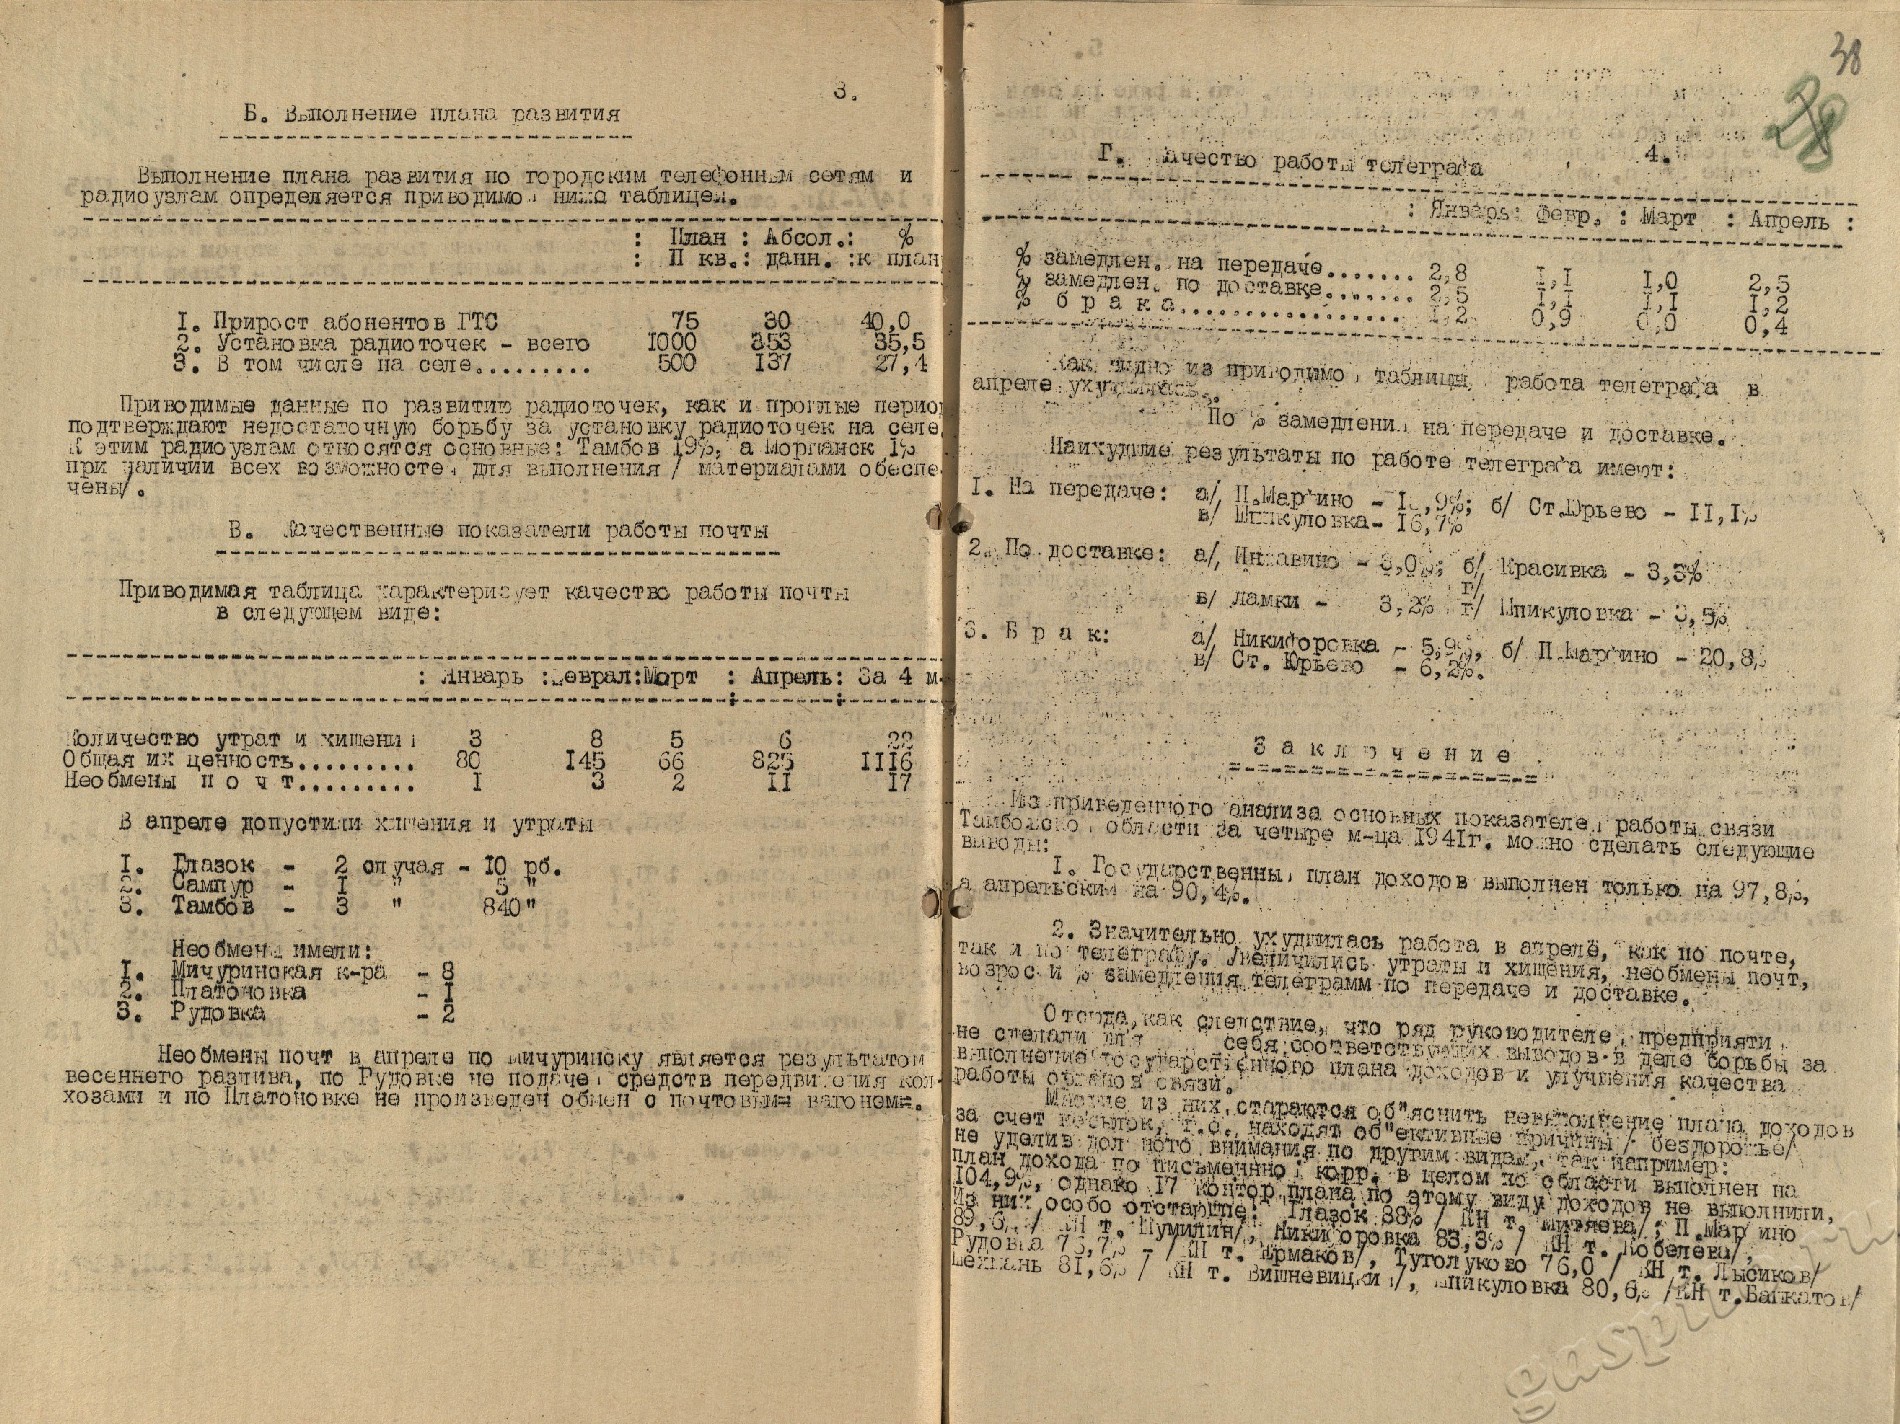 3.
Б. Выполнение плана развития
Выполнение плана развития по городским телефонным сетям и
радиоузлам определяется приводимой ниже таблицей.
: План : Абсол.: %
: П кв.: данн. :к план
1. Прирост абонентов ГТС 75 30 40,0
2. Установка радиоточек - всего 1000 353 35,5
3. В том числе на селе......... 500 137 27,4
Приводимые данные по развитию радиоточек, как и прошлые перио
подтверждают недостаточную борьбу за установку радиоточек на селе.
К этим радиоузлам относятся основные: Тамбов 19%, а Моршанск 1%
при наличии всех возможностей для выполнения / материалами обеспе-
чены/.
В. Качественные показатели работы почты
Приводимая таблица характеризует качество работы почты
в следующем виде:
: Январь :Феврал:Март : Апрель: За 4 м-
Количество утрат и хищений 3 8 5 6 22
Общая их ценность......... 80 145 66 825 1116
Необмены п о ч т......... 1 3 2 11 17
В апреле допустили хищения и утраты
1. Глазок - 2 случая - 10 рб.
2. Сампур - 1 " 5 "
3. Тамбов - 3 " 840"
Необмены имели:
1. Мичуринская к-ра - 8
2. Платоновка - 1
3. Рудовка - 2
Необмены почт в апреле по Мичуринску является результатом
весеннего разлива, по Рудовке не подачей средств передвижения кол-
хозами и по Платоновке не произведен обмен с почтовым вагоном.
38
28
Г. Качество работы телеграфа 4.
: Январь: Февр. : Март : Апрель :
% замедлен. на передаче....... 2,8 1,1 1,0 2,5
% замедлен. по доставке....... 2,5 1,1 1,1 1,2
% б р а к а.................. 1,2 0,9 0,0 0,4
Как видно из приводимой таблицы, работа телеграфа в
апреле ухудшилась.
По % замедлений на передаче и доставке.
Наихудшие результаты по работе телеграфа имеют:
1. На передаче: а/ П.Марфино - ,9%; б/ Ст.Юрьево - 11,1%
в/ Шпикуловка- 16,7%
2. По доставке: а/ Инжавино - 3,0%; б/ Красивка - 3,3%
г/
в/ Ламки - 3,2% г/ Шпикуловка - 3,5%
3. Б р а к: а/ Никифоровка - 5,9%, б/ П.Марфино - 20,8%
в/ Ст. Юрьево - 6,2%.
З а к л ю ч е н и е
Из приведенного анализа основных показателей работы связи
Тамбовской области за четыре м-ца 1941г. можно сделать следующие
выводы:
1. Государственный план доходов выполнен только на 97,8%,
а апрельский на 90,4%.
2. Значительно ухудшилась работа в апреле, как по почте,
так и по телеграфу. Увеличились утраты и хищения, необмены почт,
возрос и % замедления телеграмм по передаче и доставке.
Отсюда, как следствие, что ряд руководителей предприятий
не сделали для себя соответствующих выводов в деле борьбы за
выполнение государственного плана доходов и улучшения качества
работы органов связи.
Многие из них стараются об"яснить невыполнение плана доходов
за счет посылок, т.е. находят об"ективные причины / бездорожье/
не уделив должного внимания по другим видам, так например:
план дохода по письменной корр. в целом по области выполнен на
104,9%, однако 17 контор плана по этому виду доходов не выполнили,
Из них особо отстающие: Глазок 88% / КН т. Митяева/; П.Марфино
89,6% / КН т. Шумилин/, Никифоровка 83,3% / КН т. Кобелева/,
Рудовка 73,7% / КН т. Ермаков/, Туголуково 76,0 / КН т. Лысиков/
Шехмань 81,6% / КН т. Вишневицкий/, Шпикуловка 80,6% /КН т.Банкатов/